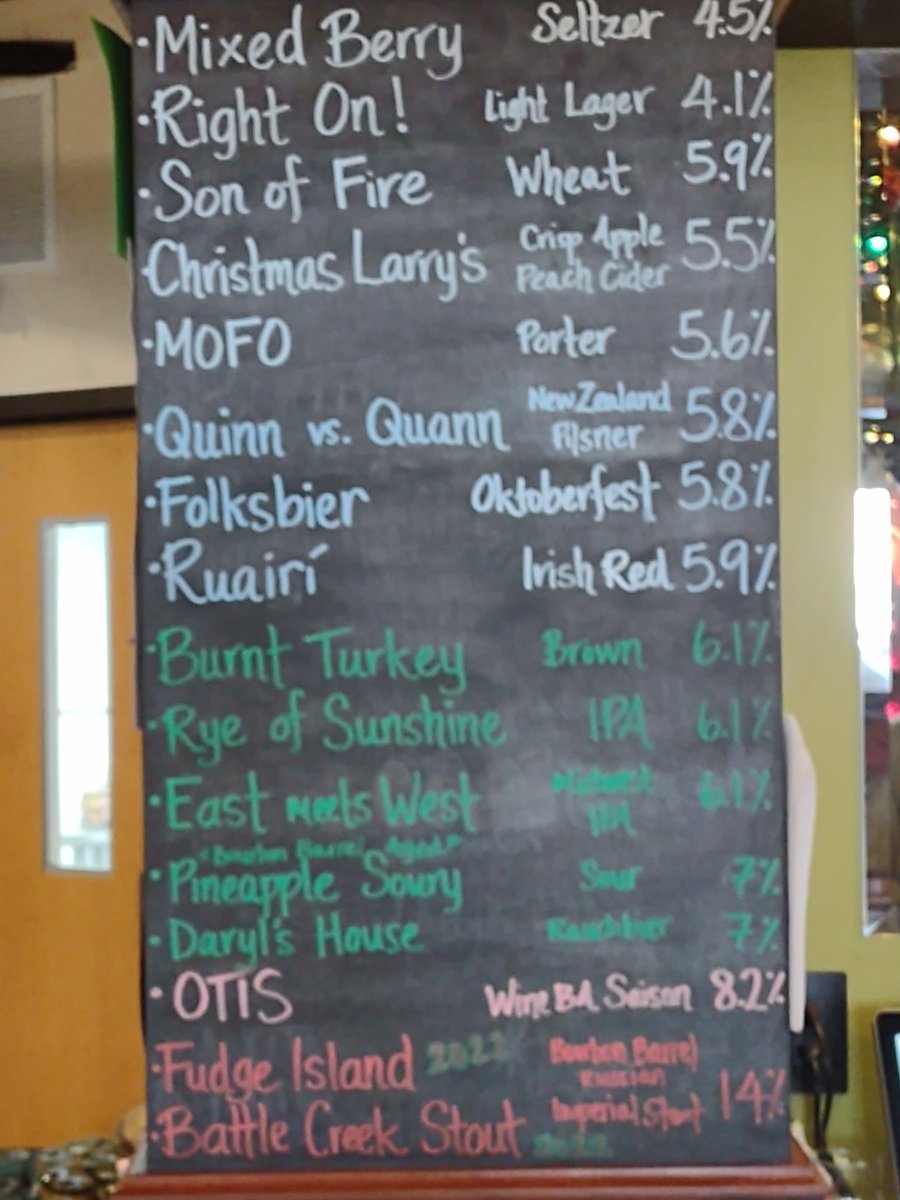 ·Mixed Berry Seltzer 4.5%
·Right On! Light Lager 4.1%
·Son of Fire Wheat 5.9%
·Christmas Larry's Crisp Apple Peach Cider 5.5%
·MOFO Porter 5.6%
·Quinn vs. Quann New Zealand Pilsner 5.8%
·Folksbier Oktoberfest 5.8%
·Ruairí Irish Red 5.9%
·Burnt Turkey Brown 6.1%
·Rye of Sunshine IPA 6.1%
·East Meets West Midwest IPA 6.1%
"Bourbon Barrel Aged"
·Pineapple Soury Sour 7%
·Daryl's House Rauchbier 7%
·OTIS Wine BA Saison 8.2%
·Fudge Island 2022 Bourbon Barrel
Russian
·Battle Creek Stout 2022 Imperial Stout 14%